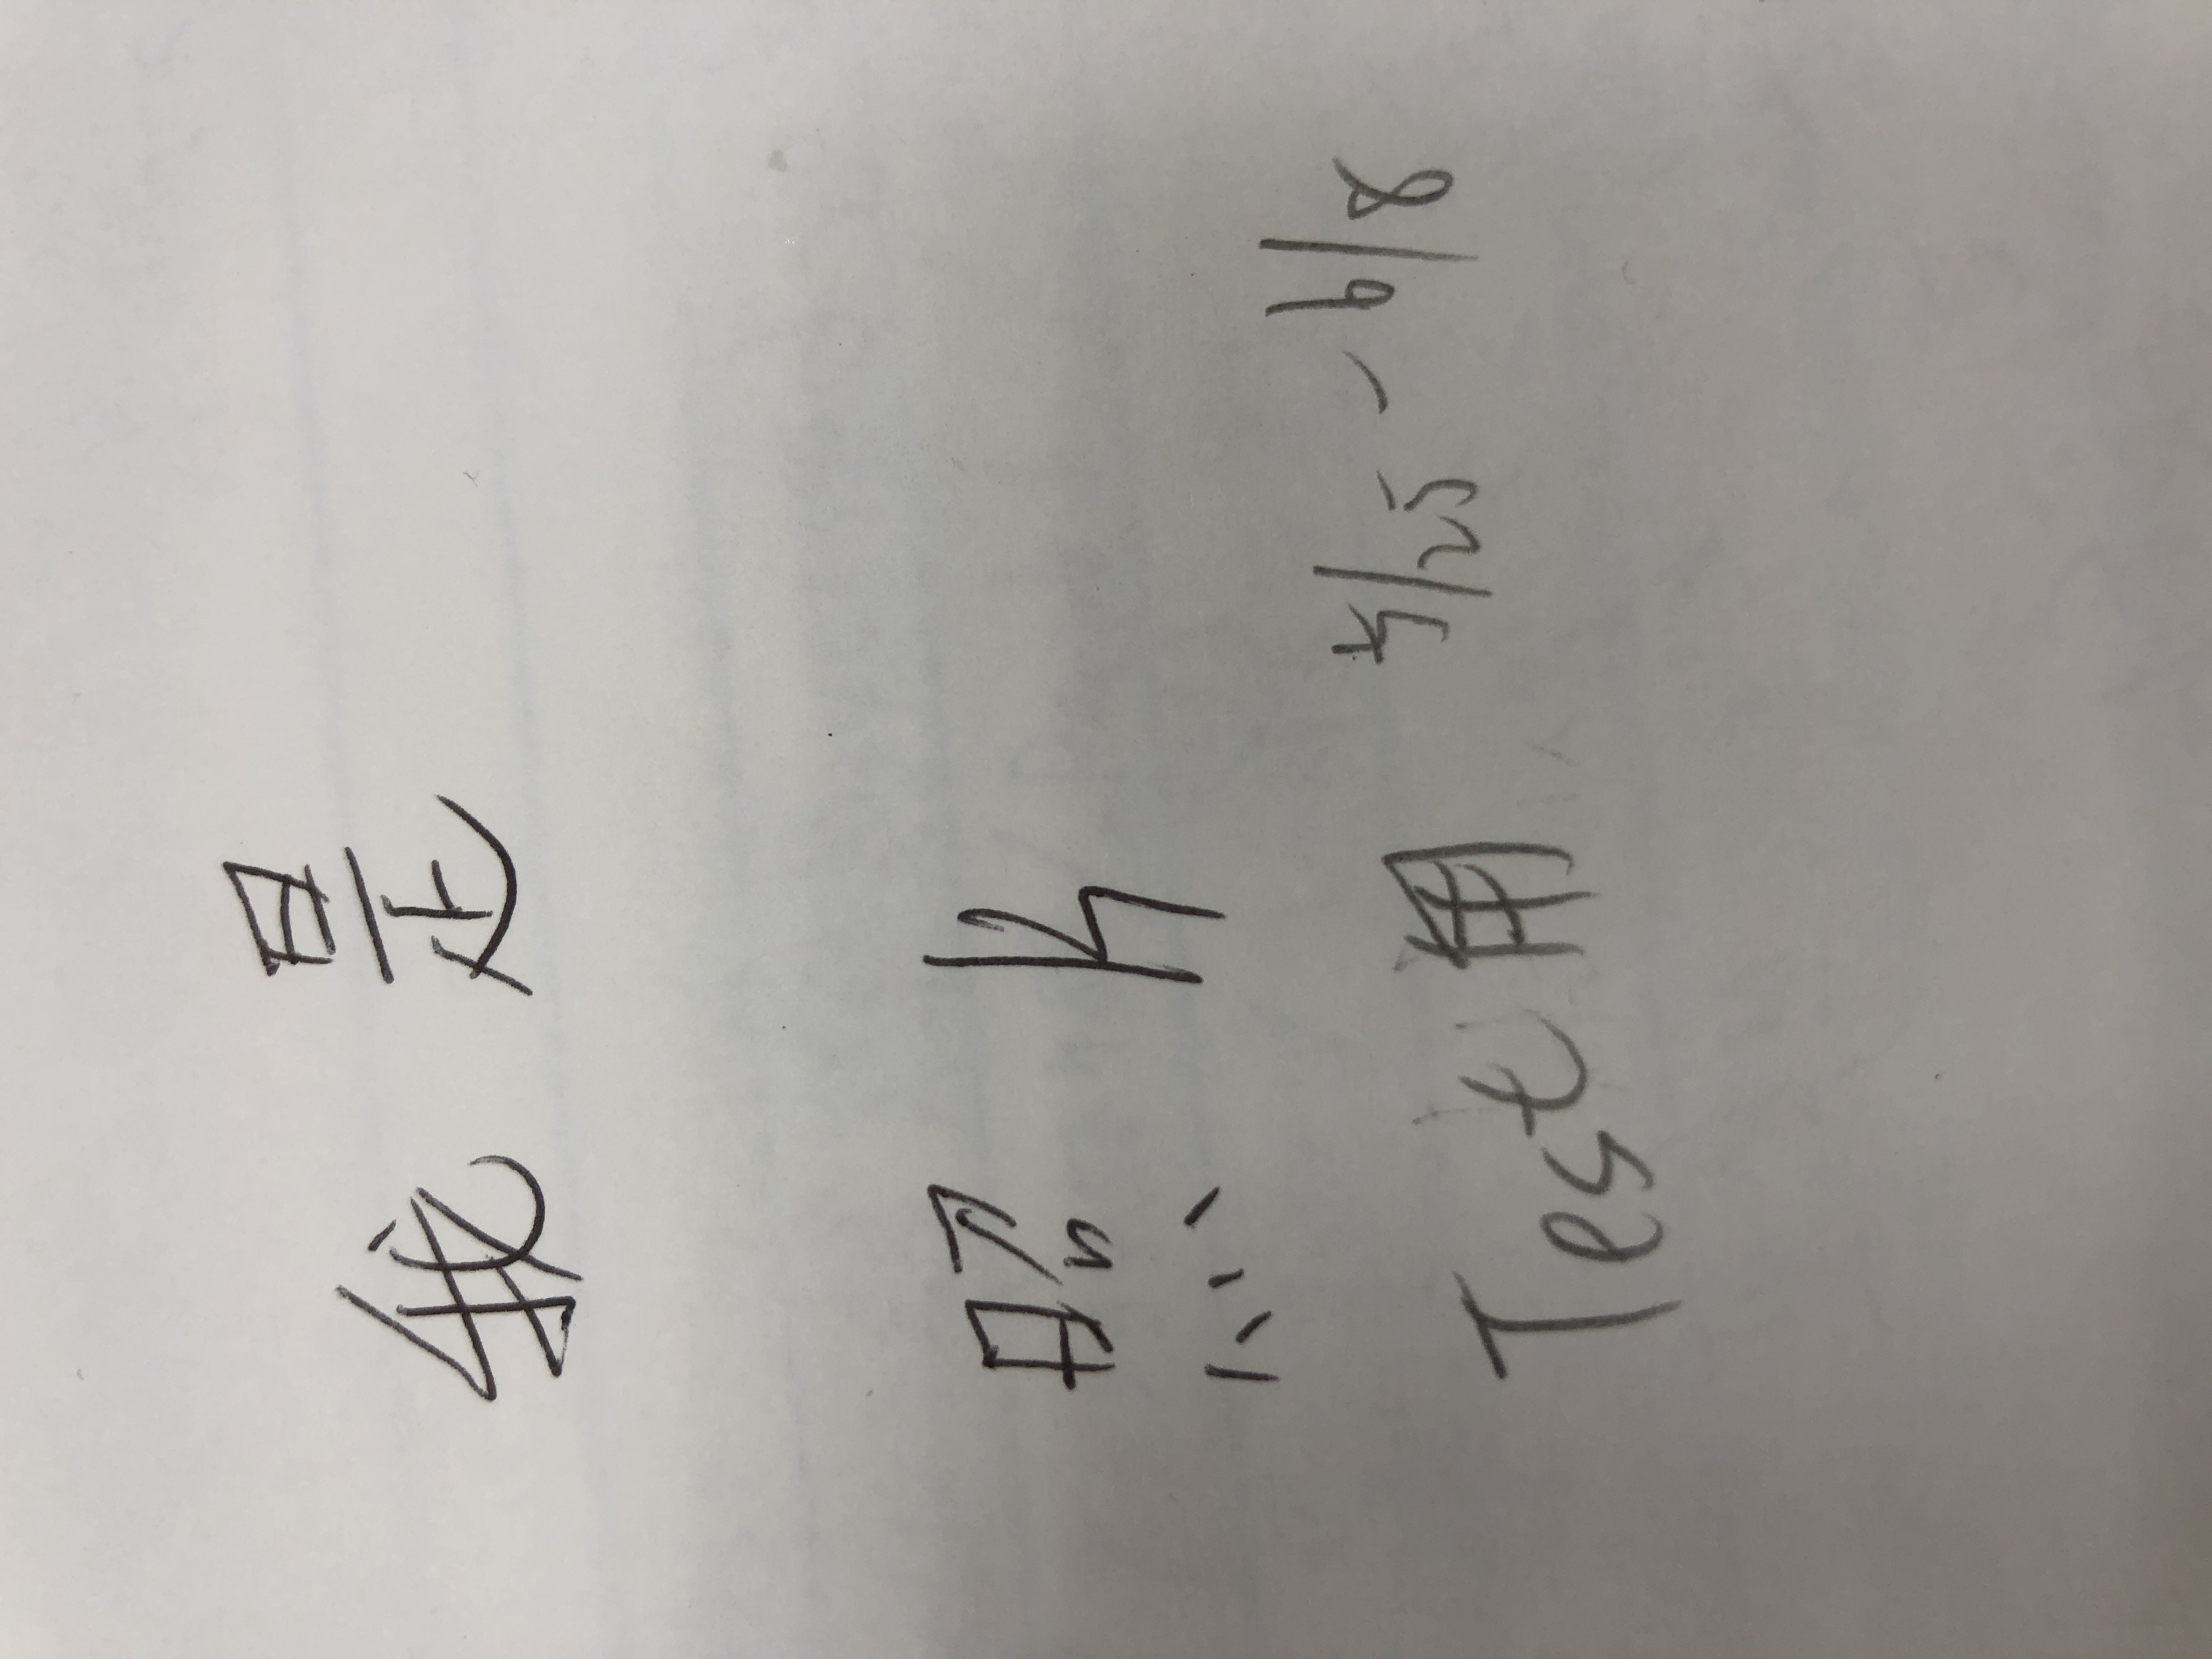 我是
照片
Test用 5/25-6/8